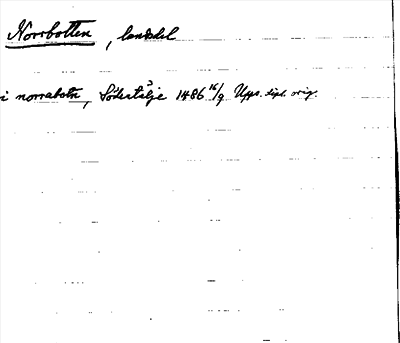 Norrbotten, landsdel
i norrabotn, Södertälje 1486 16/9 Upps. dipl. orig.